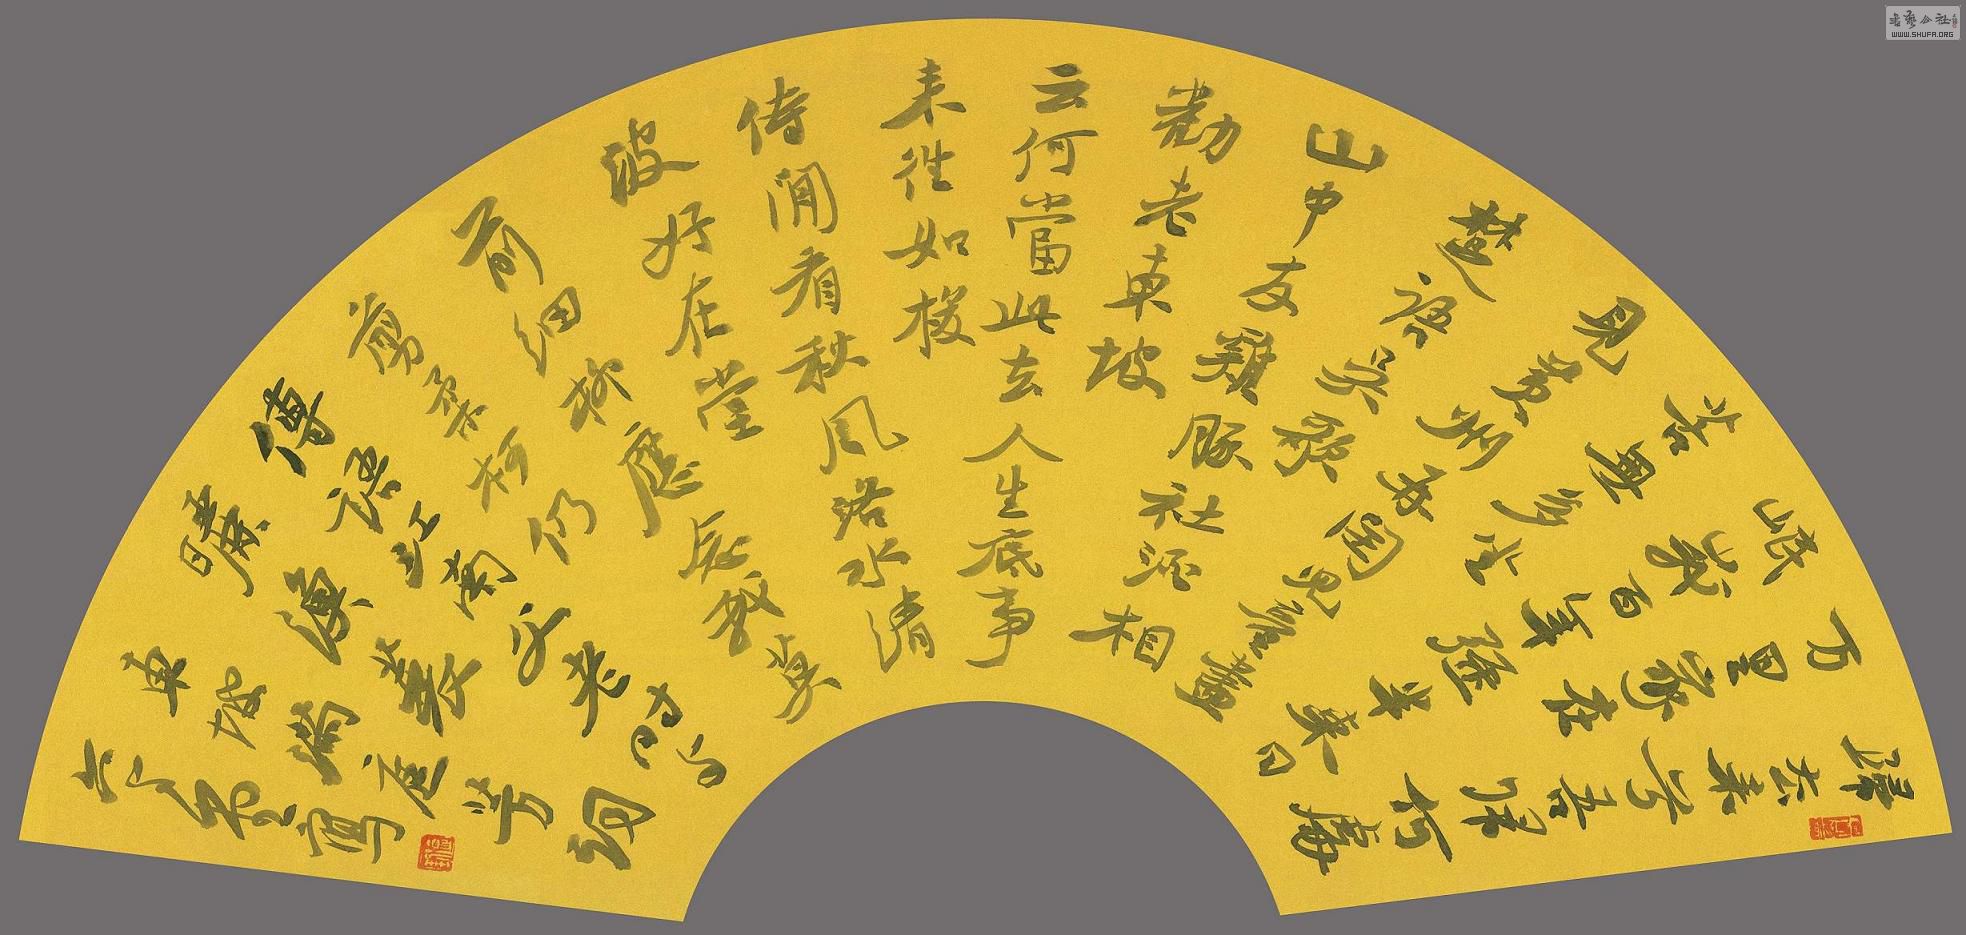 歸去来兮吾歸何處
万里家在
岷峨百年强半来日
苦無多坐
見黄州再閏兒童盡
楚語吴歌
山中友雞豚社酒相
勸老東坡
云何當此去人生底事
来往如梭
待閒看秋風洛水清
波好在堂
前細柳應念我莫
剪柔柯仍
傳語江南父老時与
曬漁蓑
東坡滿庭芳詞
寫
WWW.SHUFA.ORG